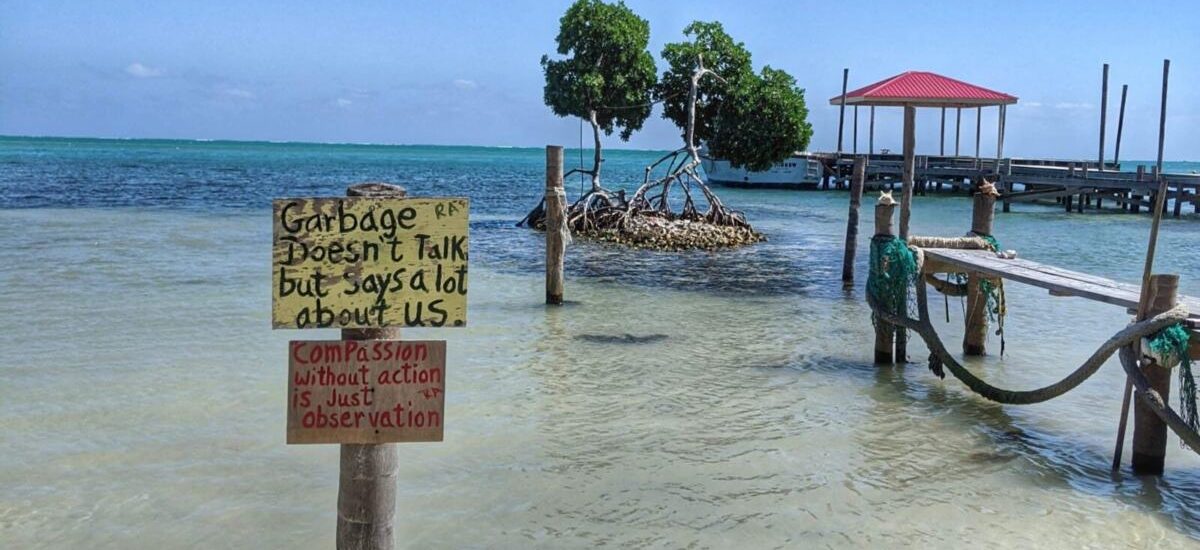 Garbage RA
Doesn't Talk
but says a lot
about US.
Compassion
without action
is Just RA
observation